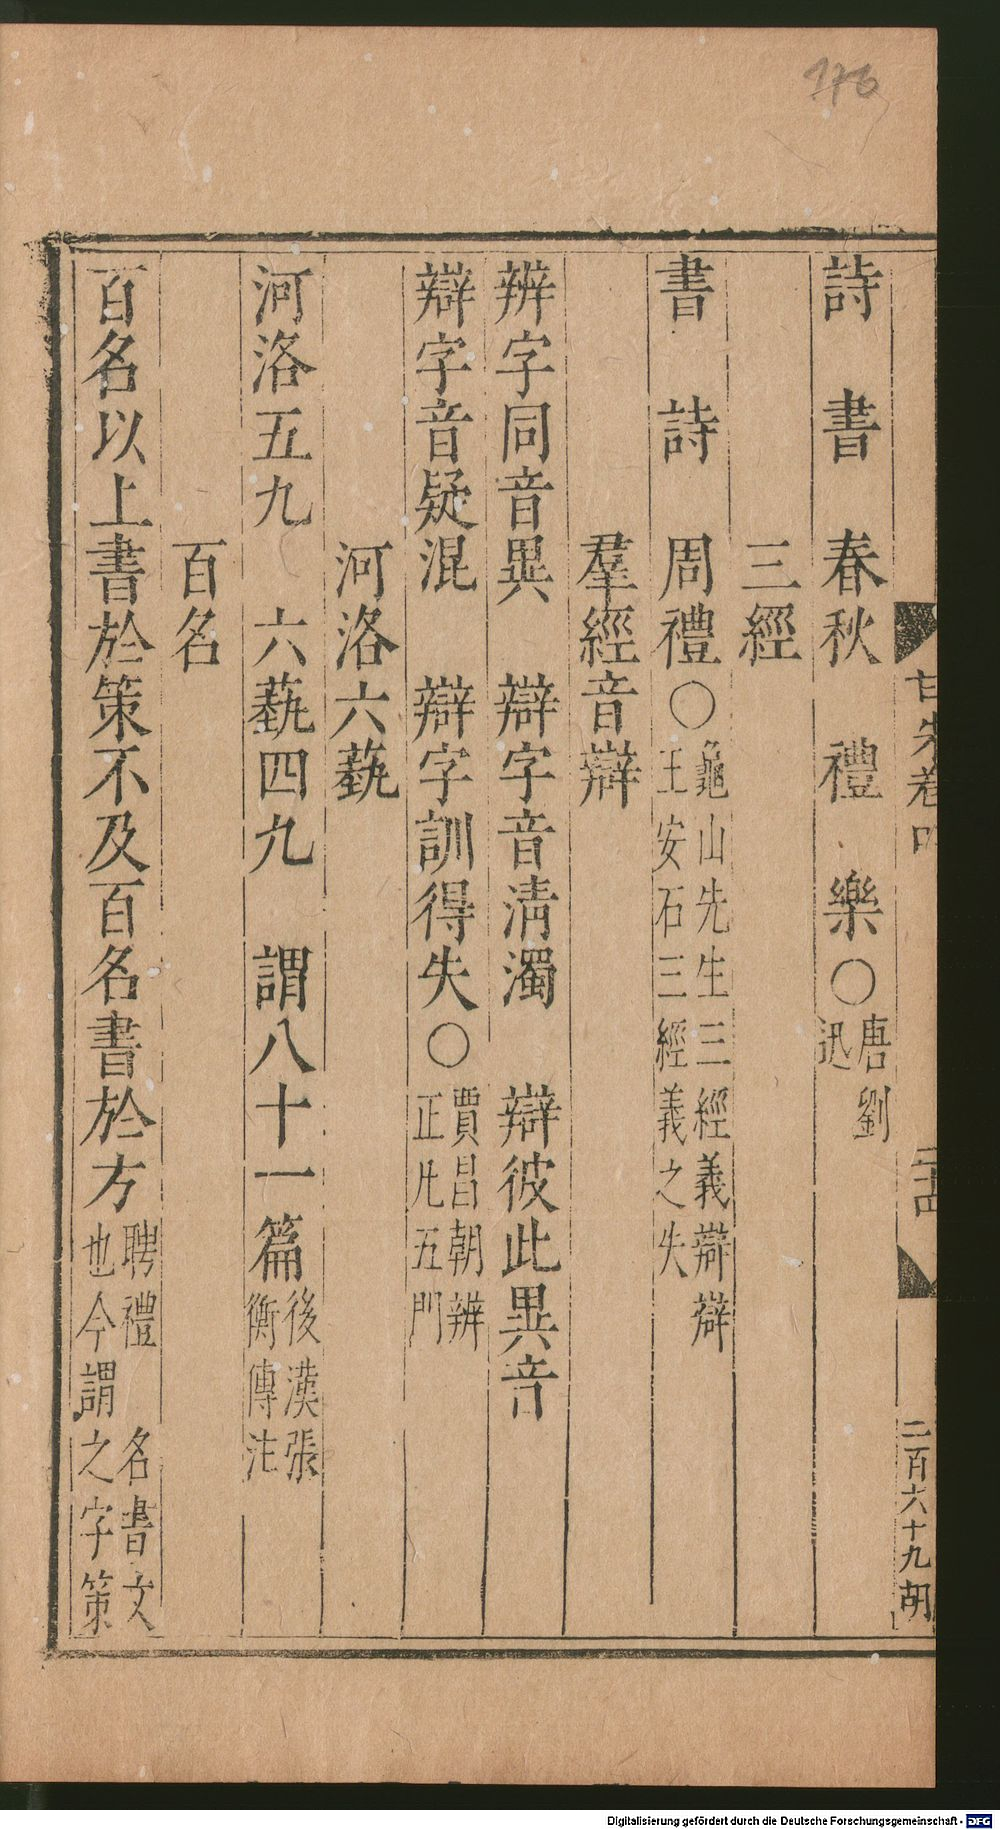 176
詩　書　春秋　禮　樂○唐劉迅
三經
書　詩　周禮○龜山先生三經義辯辯王安石三經義之失
羣經音辯
辨字同音異　辯字音清濁　辯彼此異音
辯字音疑混　辯字訓得失○賈昌朝辨正凡五門
河洛六藝
河洛五九　六藝四九　謂八十一篇後漢張衡傳注
百名
百名以上書於策不及百名書於方聘禮　名書文也今謂之字策
卷
二百六十九胡
Digitalisierung gefördert durch die Deutsche Forschungsgemeinschaft - DFG